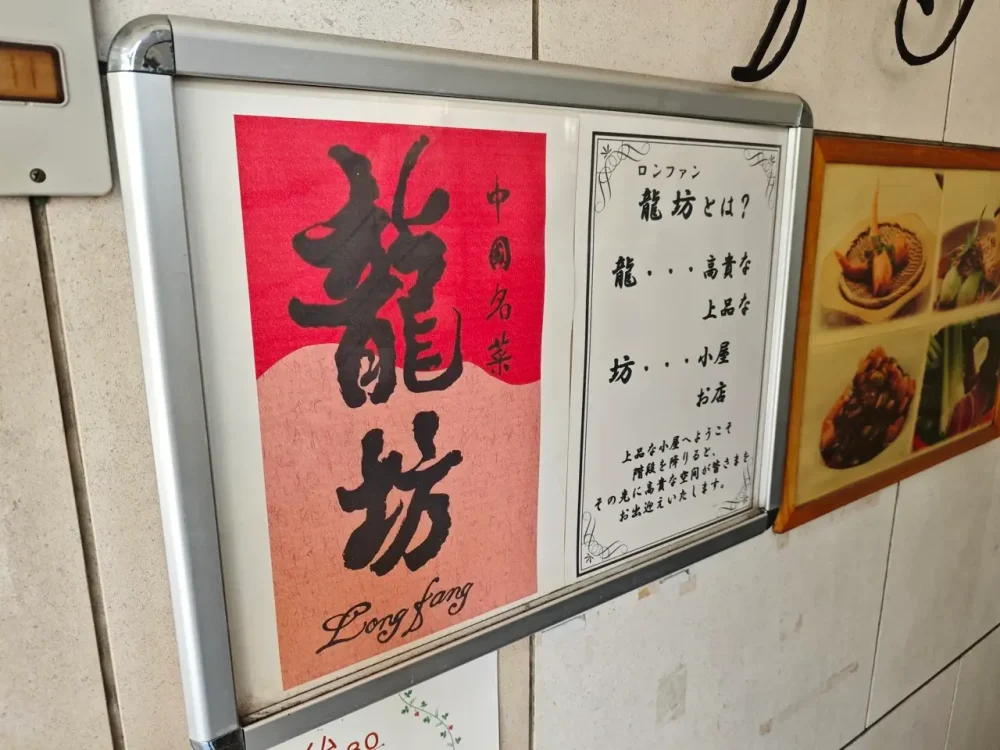 龍坊
中國名菜
Long fang
ロンファン
龍坊とは?
龍・・・高貴な
上品な
坊・・・小屋
お店
上品な小屋へようこそ
階段を降りると、
その先に高貴な空間が皆さまを
お出迎えいたします。